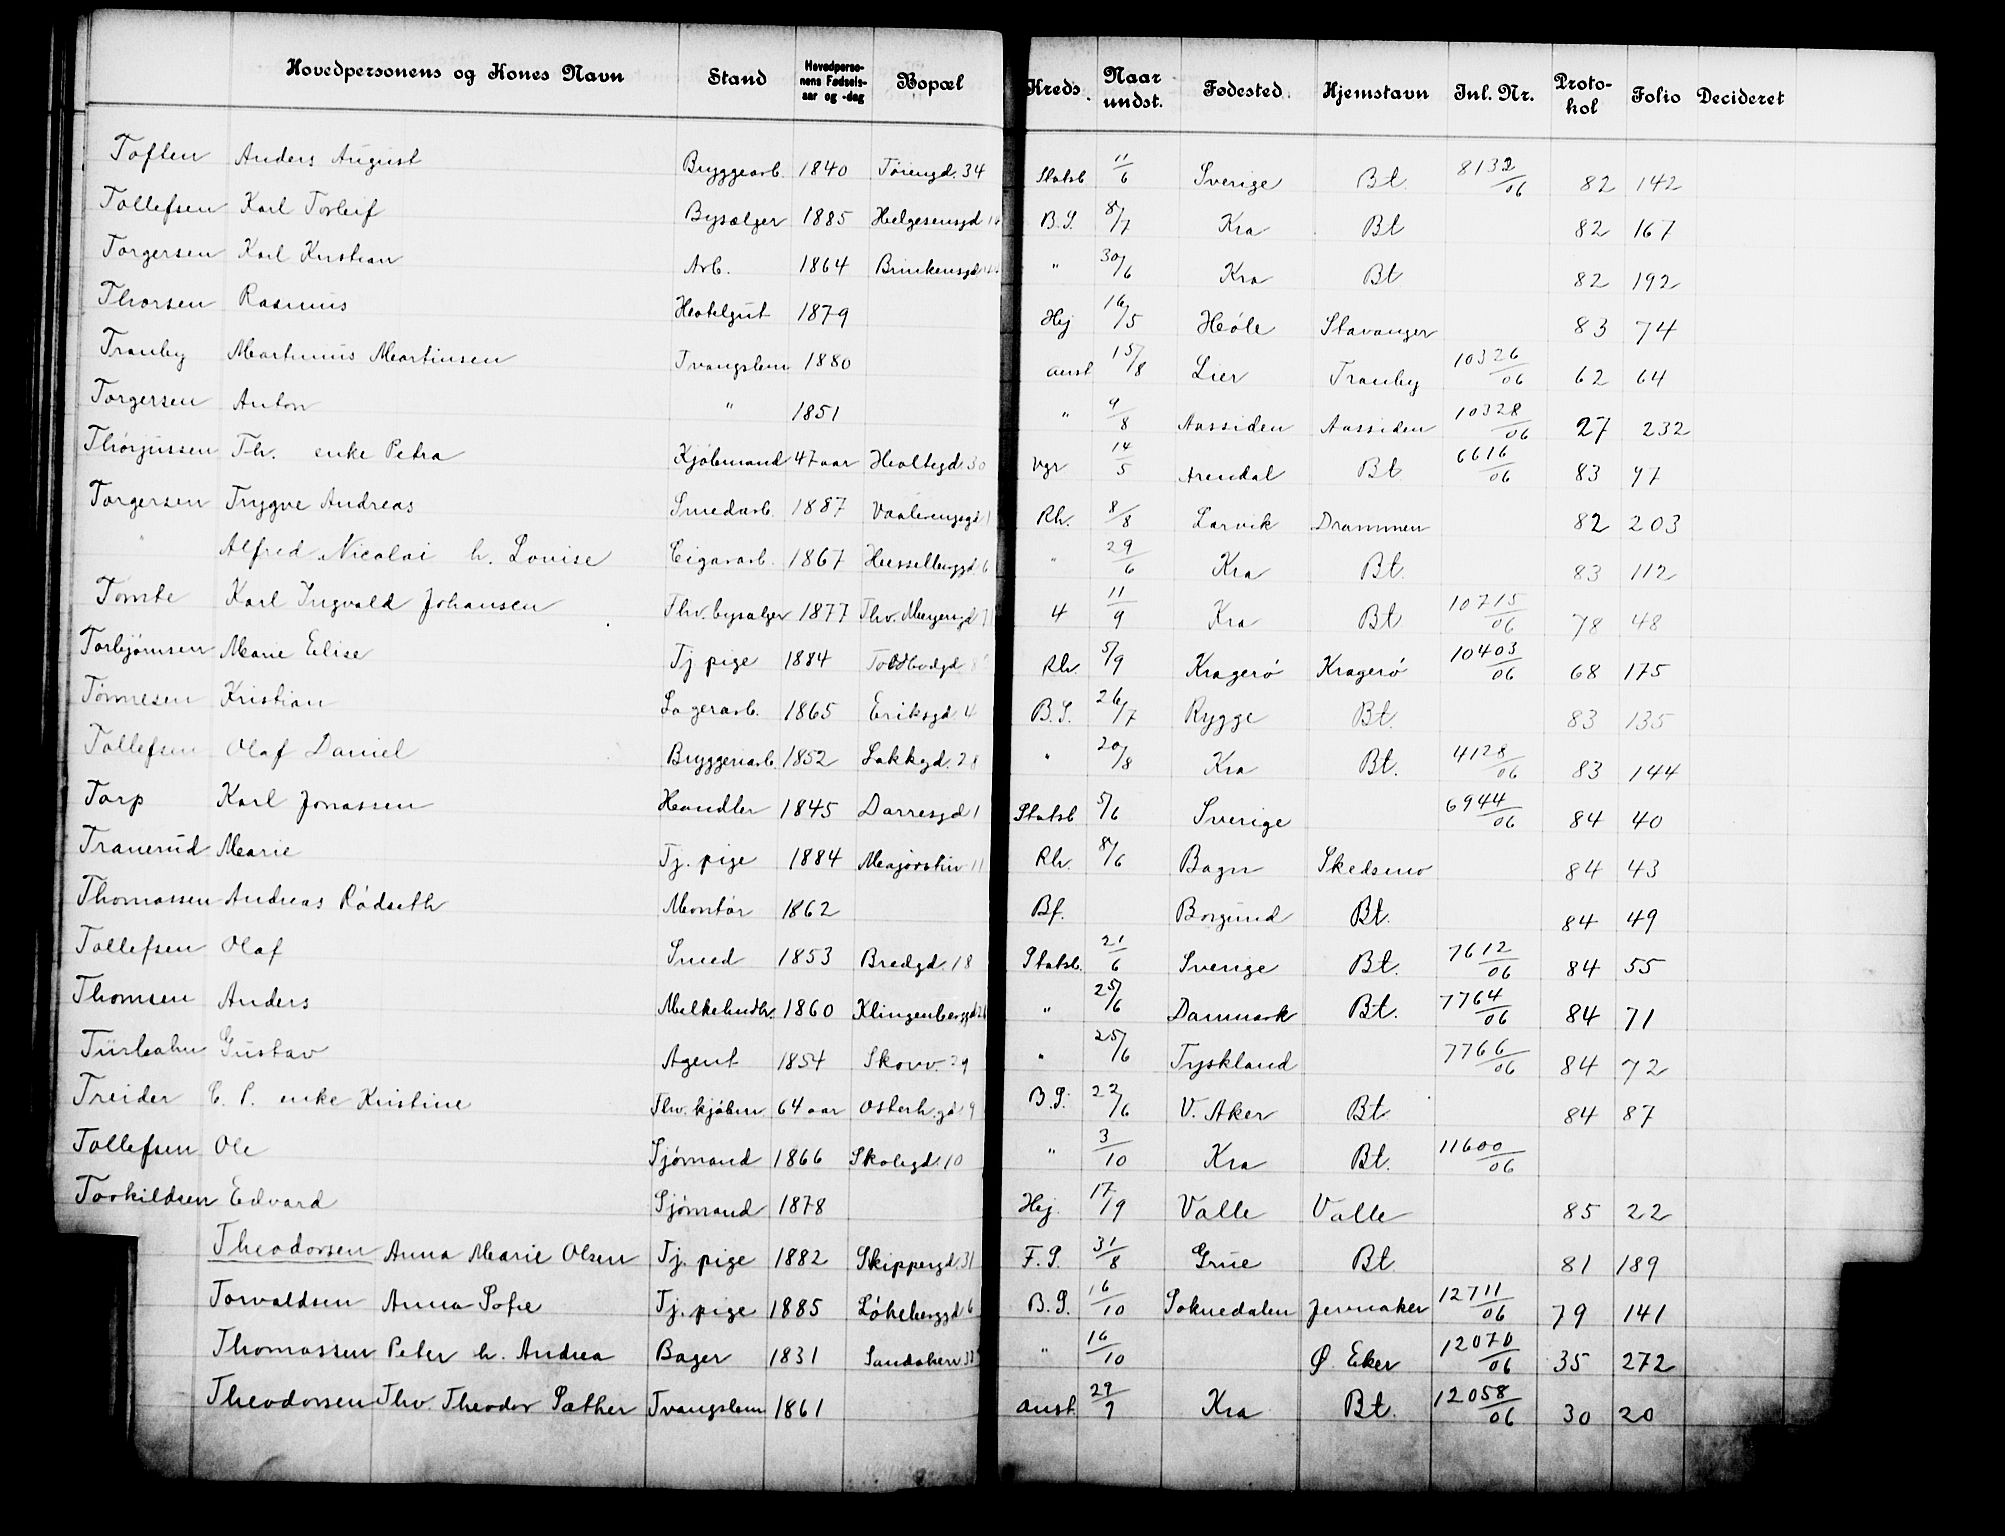 Hovedpersonens og Kones Navn Stand Hovedperso-nens Fødsels-aar og -dag Bopæl Kreds. Naar undst. Fødested. Hjemstavn Inl. Nr. Proto-kol Folio Decideret
Toften Anders August Bryggearb. 1840 Tøiengd. 34 Statsb 11/6 Sverige Bt. 8132/06 82 142
Tollefsen Karl Torleif Bysælger 1885 Helgesensgd B.S. 8/7 Kra Bt 82 167
Torgersen Karl Kristian Arb. 1864 Brinkensgd " 30/6 Kra Bt 82 192
Thorsen Rasmus Hotelgut 1879 Hej 16/5 Høle Stavanger 83 74
Tranby Martinius Martinsen Tvangslem 1880 anst 15/8 Lier Tranby 10326/06 62 64
Torgersen Anton " 1851 " 9/8 Aassiden Aassiden 10328/06 27 232
Thorjussen Th. enke Petra Kjøbmand 47 aar Holtegd. 30 Vgr 14/5 Arendal Bt. 6616/06 83 97
Torgersen Trygve Andreas Smedarb. 1887 Vaalerengsgd 1 Rh. 8/8 Larvik Drammen 82 203
" Alfred Nicolai h. Lovise Cigararb. 1867 Hesselbergsgd 6 " 29/6 Kra Bt. 83 112
Tomte Karl Ingvald Johansen Fhv. bysælger 1877 Thv. Meyersgd 4 11/9 Kra Bt 10715/06 78 48
Torbjørnsen Marie Elise Tj pige 1884 Toldbodgd Rh. 5/9 Kragerø Kragerø 10403/06 68 175
Tønnesen Kristian Lagerarb. 1865 Eriksgd 4 B.S. 26/7 Rygge Bt. 83 135
Tollefsen Olaf Daniel Bryggeriarb. 1852 Lakkegd. 28 " 20/8 Kra Bt. 4128/06 83 144
Torp Karl Jonassen Handler 1845 Darresgd 1 Statsb 5/6 Sverige 6944/06 84 40
Tranerud Marie Tj. pige 1884 Majorstuv 11 Rh. 8/6 Bagn Skedsmo 84 43
Thomassen Andreas Rødseth Montør 1862 Bf. Borgund Bt. 84 49
Tollefsen Olaf Smed 1853 Bredgd. 18 Statsb. 21/6 Sverige Bt. 7612/06 84 55
Thomsen Anders Melkehndlr. 1860 Klingenberggd 26 " 25/6 Danmark Bt. 7764/06 84 71
Gustav Agent 1854 Skovv. 29 " 25/6 Tyskland 7766/06 84 72
Treider C. P. enke Kristine Fhv. kjøbm 64 aar Osterh.gd. 9 B.S. 22/6 V. Aker Bt. 84 87
Tollefsen Ole Sjømand 1866 Skolegd. 10 " 3/10 Kra Bt. 11600/06
Torkildsen Edvard Sjømand 1878 Hej. 17/9 Valle Valle 85 22
Theodorsen Anna Marie Olsen Tj. pige 1882 Skippergd. 31 F.S. 31/8 Grue Bt 81 189
Torvaldsen Anna Sofie Tj. pige 1885 Løkebergd 6 B.S. 16/10 Soknedalen Jevnaker 12711/06 79 141
Thomassen Peter h. Andrea Bager 1831 Sandakerv " 16/10 Ø. Eker 12070/06 35 272
Theodorsen Fhv. Theodor Sæther Tvangslem 1861 anst. 29/9 Kra Bt. 12058/06 30 20